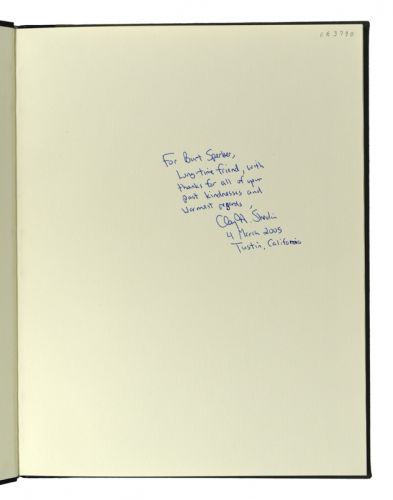 CR3790
For Burt Sperber,
Long-time friend, with
thanks for all of your
past kindnesses and
warmest regards,
4 March 2005
Tustin, California